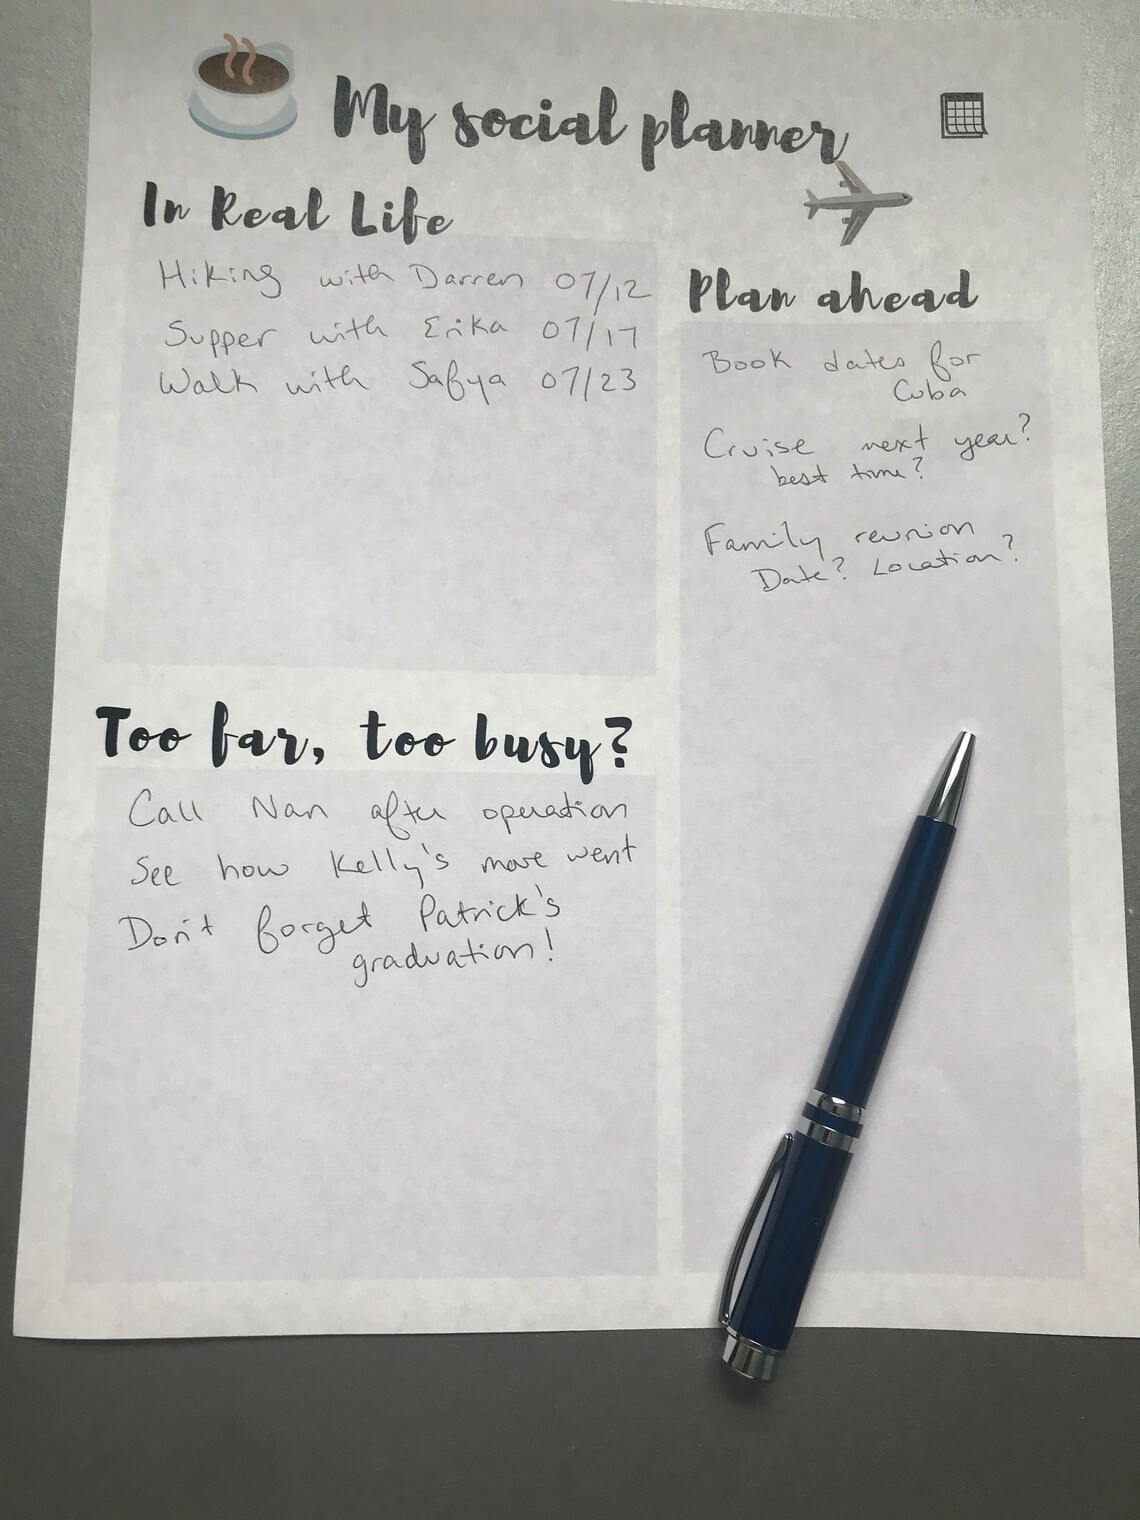 My social planner
In Real Life
Hiking with Darren 07/12
Supper with Erika 07/17
Walk with Safya 07/23
Plan ahead
Book dates for
Cuba
Cruise next year?
best time?
Family reunion
Date? Location?
Too far, too busy?
Call Nan after operation
See how Kelly's move went
Don't forget Patrick's
graduation!